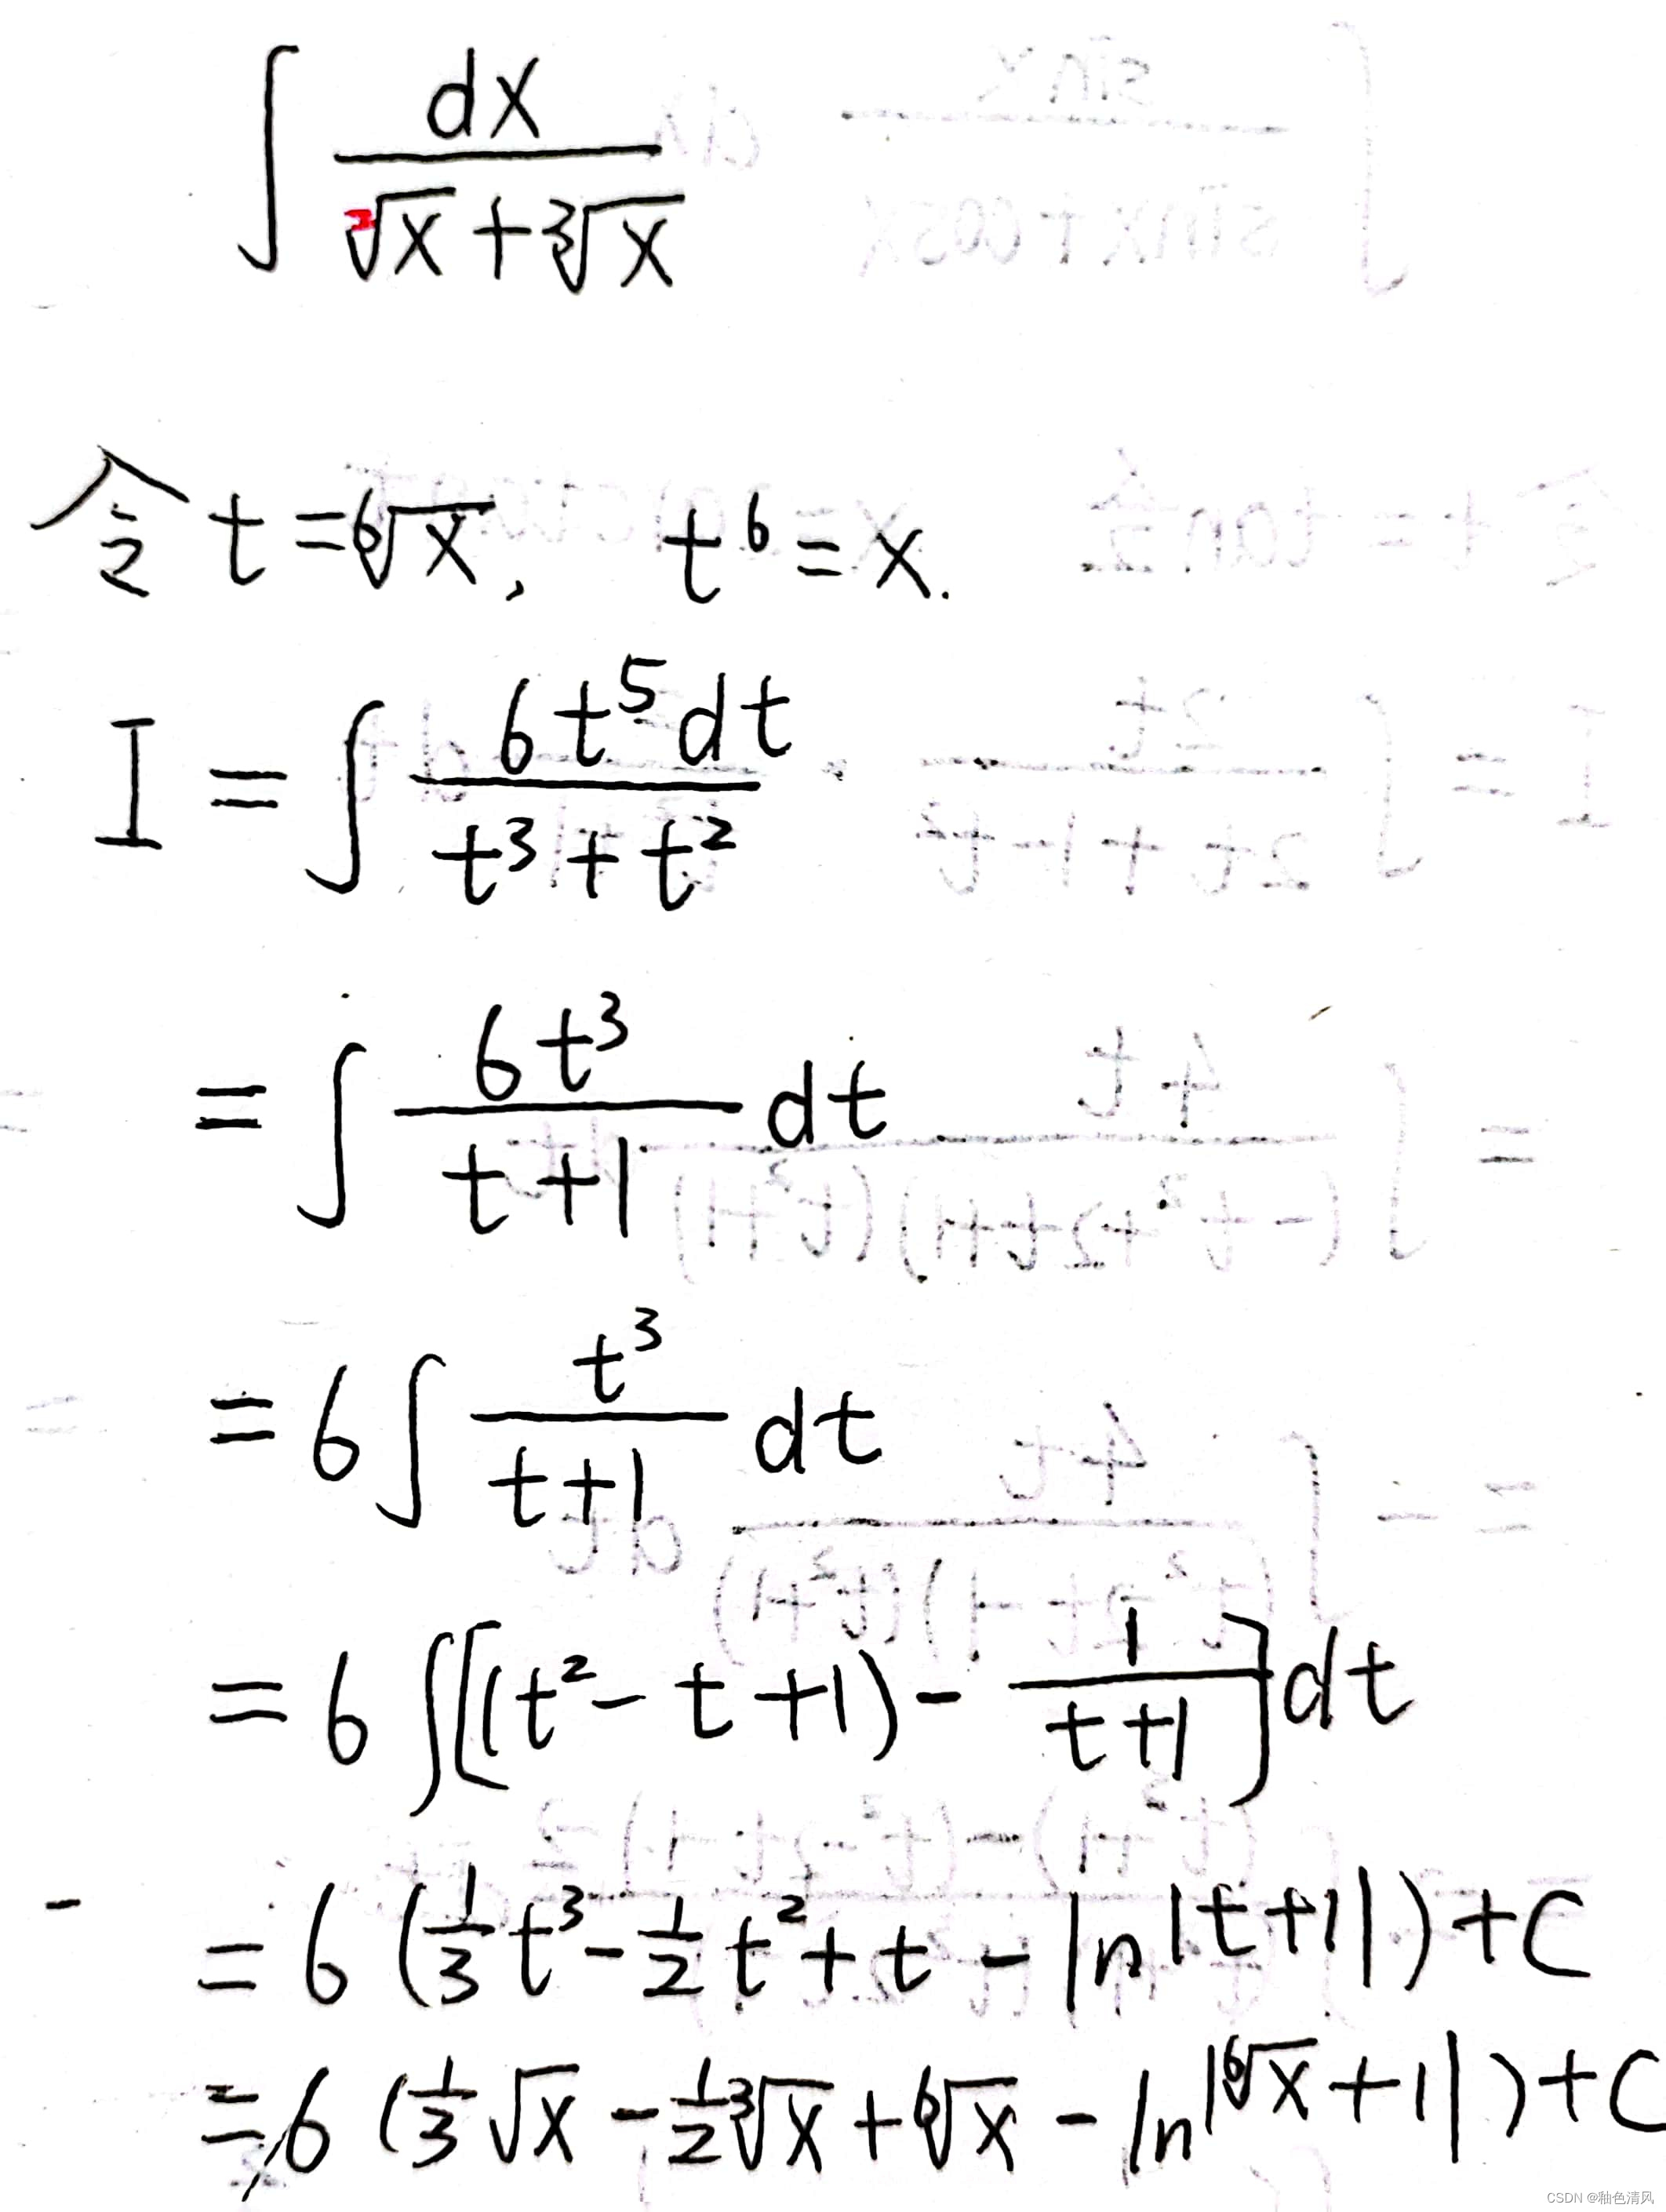 ∫ dx / (²√x + ³√x)
令 t = ⁶√x, t⁶ = x.
I = ∫ 6t⁵dt / (t³ + t²)
= ∫ 6t³ / (t+1) dt
= 6∫ t³ / (t+1) dt
= 6∫[(t² - t + 1) - 1/(t+1)]dt
= 6(1/3 t³ - 1/2 t² + t - ln|t+1|) + C
= 6(1/3 √x - 1/2 ³√x + ⁶√x - ln|⁶√x + 1|) + C
CSDN @釉色清风